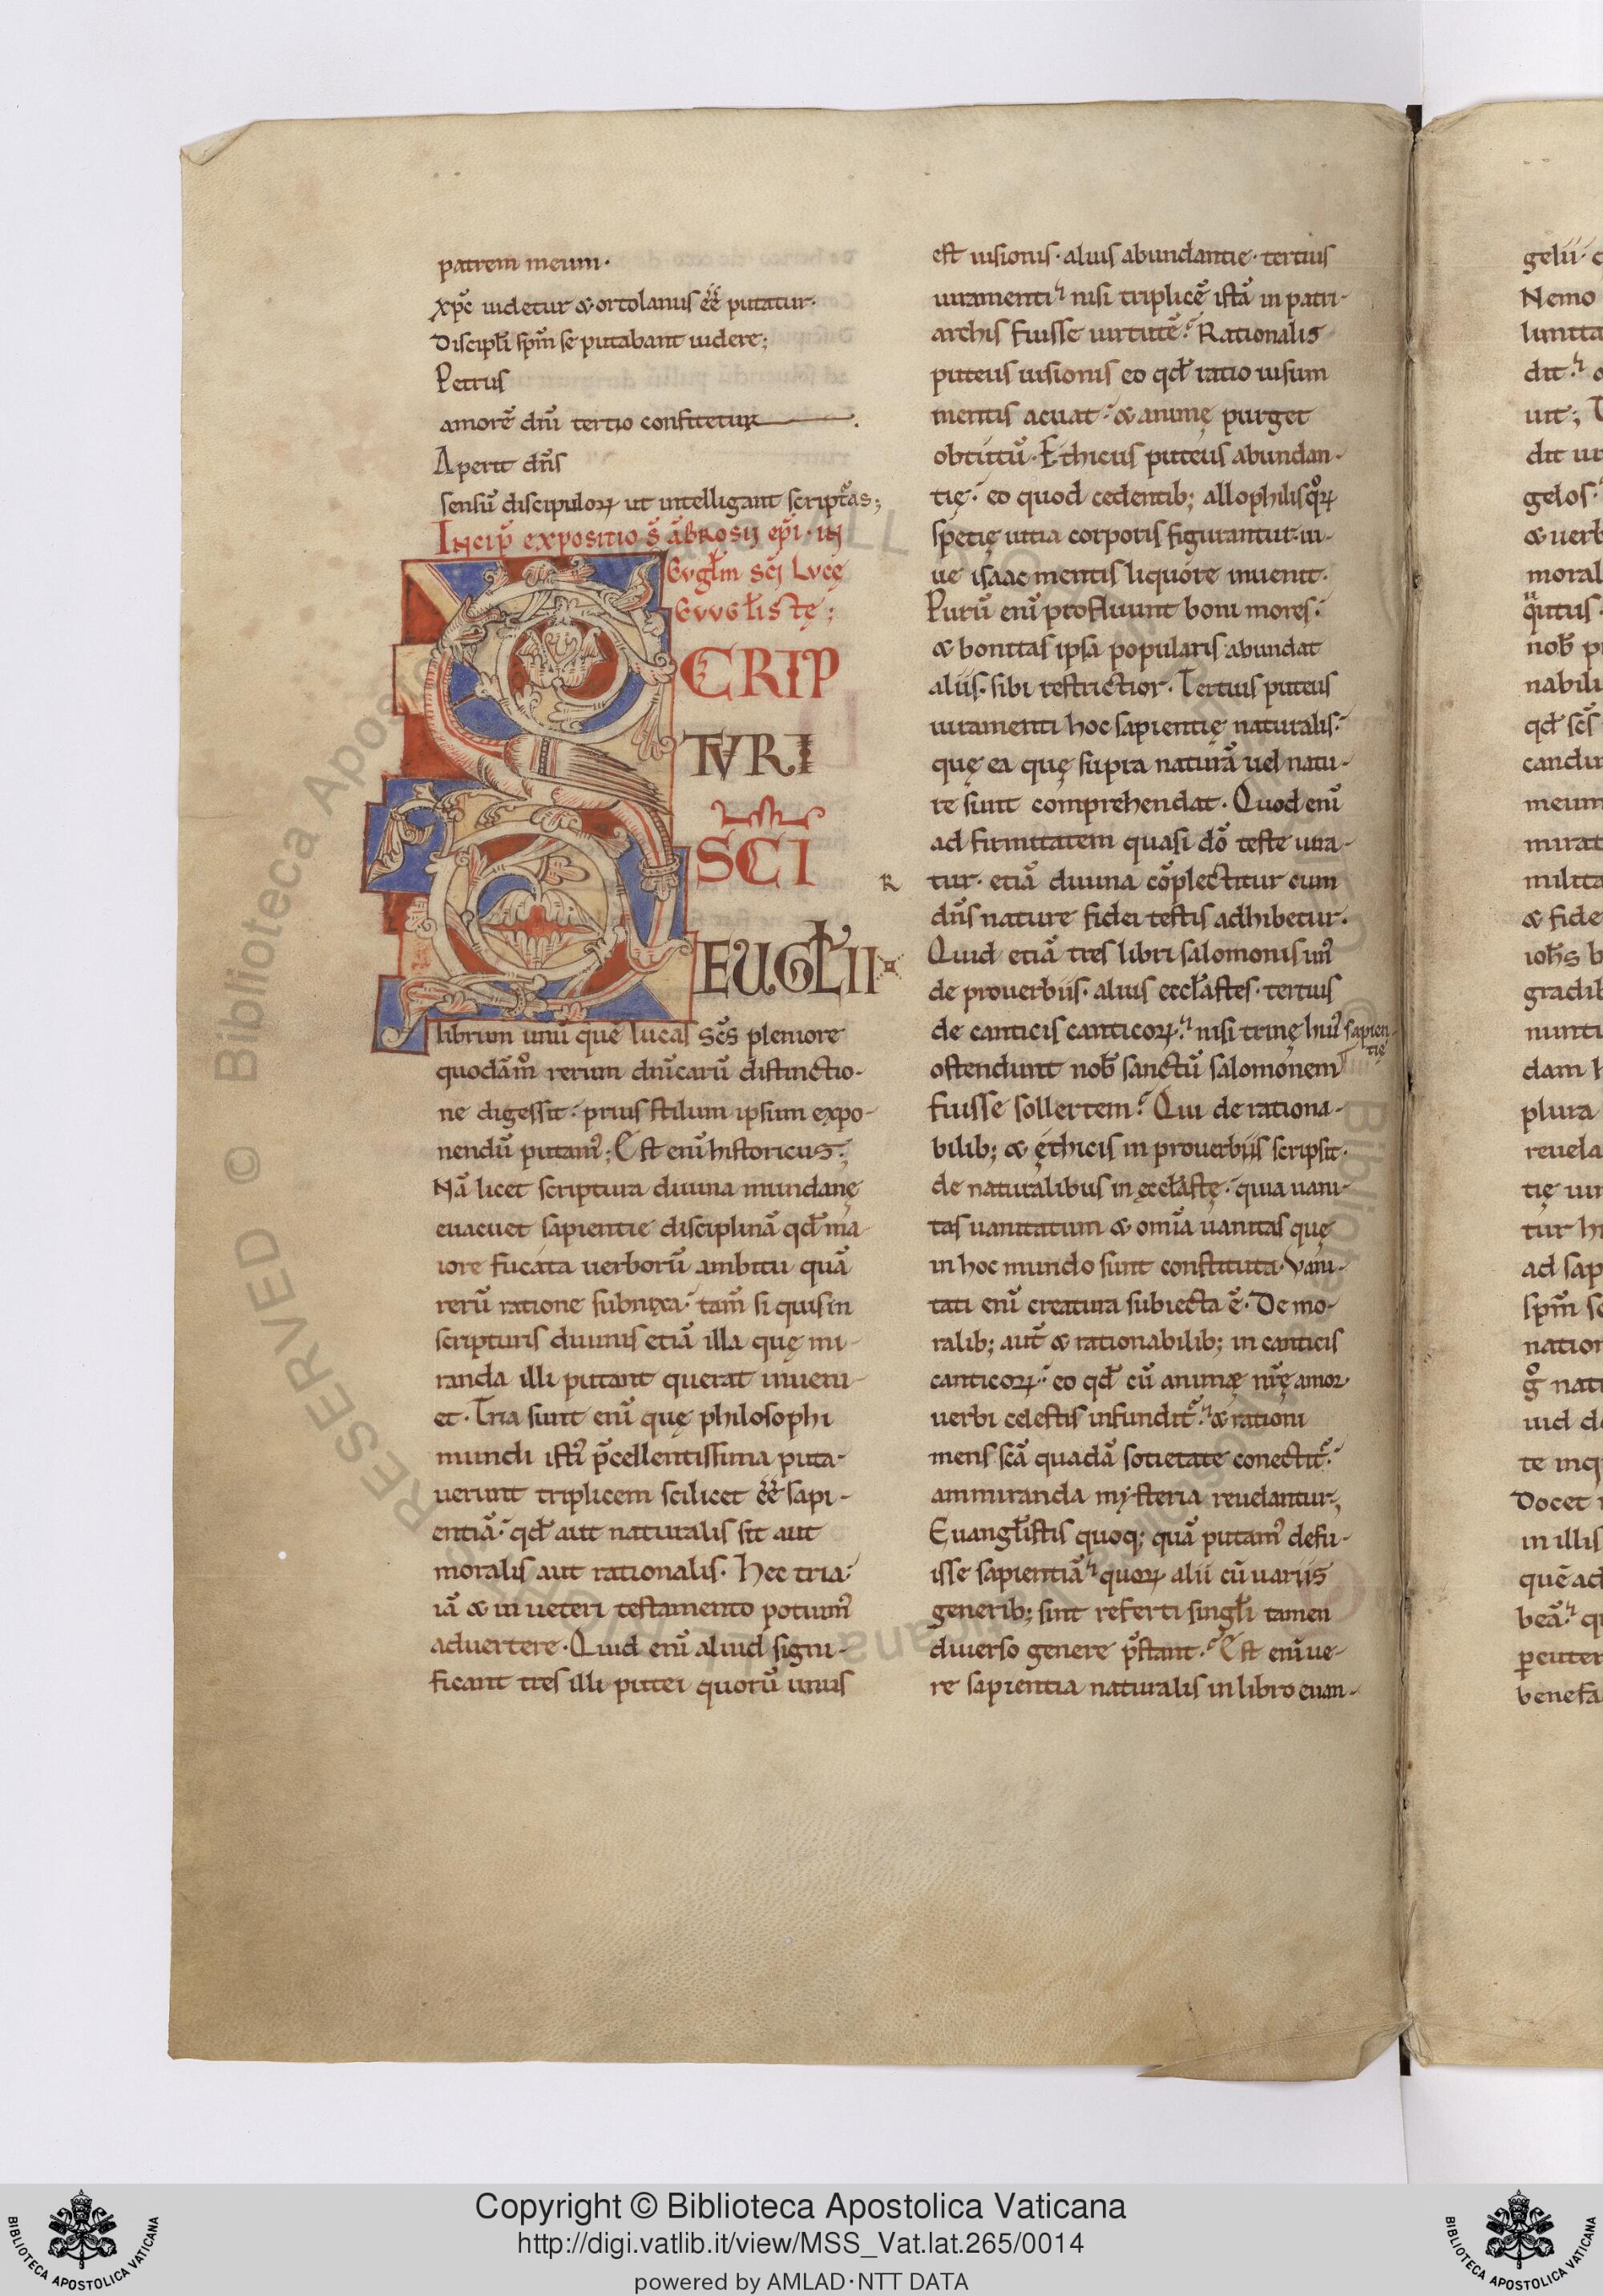 patrem meum·
xp̄c uidetur & ortolanus eē̄ putatur·
Discipl̄i sp̄m se putabant uidere;
Petrus
amorē dn̄i tertio confitetur
Aperit dn̄s
sensū discipuloꝝ ut intelligant script̄as;
Incip̄ expositio s̄ ābrosij ep̄i · in
Eugl̄m sc̄i Lucę
Euugl̄istę;
SCRIP
TVRI
SCI
EUGL̄II
librum unū que lucas sc̄s pleniore
quodām̊ rerum dn̄icarū distinctio-
ne digessit· prius stilum ipsum expo-
nendū putam᷒; Est enī historicus;
Nā licet scriptura diuina mundanę
euacuet sapientie disciplinā qd̄ ma-
iore fucata uerborū ambitu quā
rerū ratione subnixa· tam̄ si quis in
scripturis diuinis etiā illa quę mi-
randa illi putant querat inueni-
et· Tria sunt enī quę philosophi
mundi isti᷒ p̄cellentissima puta-
uerunt triplicem scilicet eē̄ sapi-
entiā· qd̄ aut naturalis sit aut
moralis aut rationalis· Hec tria
iā & in ueteri testamento potuim᷒
aduertere· Quid enī aliud signi-
ficant tres illi putei quorū unus
est uisionis· alius abundantie· tertius
iuramenti nisi triplicē istā in patri-
archis fuisse uirtutē? Rationalis
puteus uisionis eo qd̄ ratio uisum
mentis acuat· & animę purget
obtutū· Ethicus puteus abundan-
tię· eo quod cedentib; allophilis qͦꝝ
spetię uitia corporis figurantur· ui-
ue isaac mentis liquore inuenit·
Purū enī profluunt boni mores·
& bonitas ipsa popularis abundat
aliis· sibi restrictior· Tertius puteus
iuramenti hoc sapientię naturalis·
quę ea quę supra naturā uel natu-
re sunt comprehendat· Quod enī
ad firmitatem quasi dō teste iura-
R tur· etiā diuina cōplectitur cum
dn̄s nature fidei testis adhibetur·
Quid etiā tres libri salomonis un᷒
de prouerbiis· alius eccl̄astes· tertius
de canticis canticoꝝ· nisi trinę hui᷒ sapien-
tię
ostendunt nob̄ sanctū salomonem
fuisse sollertem? Qui de rationa-
bilib; & ęthicis in prouerbiis scripsit·
de naturalibus in ęccl̄astę· quia uani-
tas uanitatum & omīa uanitas quę
in hoc mundo sunt constituta· Vani-
tati enī creatura subiecta ē· De mo-
ralib; aut̄ & rationabilib; in canticis
canticoꝝ· eo qd̄ cū animæ nr̄ę amor
uerbi celestis infundit᷒· & rationi
mens sc̄a quadā societate conectit᷒·
ammiranda mysteria reuelantur;
Euangl̄istis quoq; quā putam᷒ defu-
isse sapientiā quoꝝ alii cū uariis
generib; sint referti singl̄i tamen
diuerso genere p̄stant? Est enī ue-
re sapientia naturalis in libro euan-
gelii
Nemo
limita
dit
uit;
dit
gelos
& uerb
moral
nob̄
nabili
qd̄ sc̄s
candi
meum
mirat
milita
& fide
ioh̄s b
gradib
nunti
dam h
plura
reuela
tię
tur
ad sap
sp̄m
nation
te inq
Docet
in illis
quē ad
beā·
benefa
Copyright © Biblioteca Apostolica Vaticana
http://digi.vatlib.it/view/MSS_Vat.lat.265/0014
powered by AMLAD·NTT DATA
BIBLIOTECA APOSTOLICA VATICANA
BIBLIOTECA APOSTOLICA VATICANA